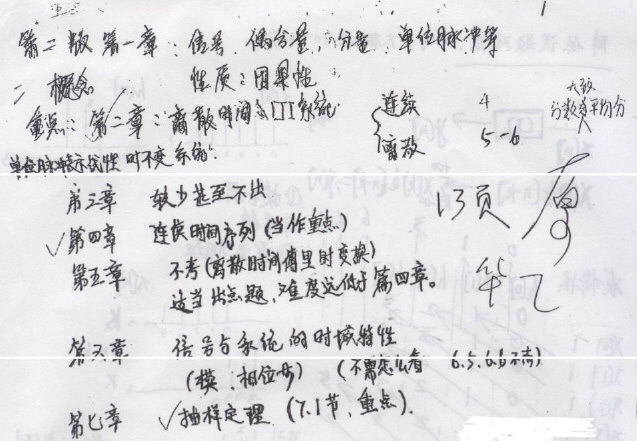 第二版 第一章：信号、偶分量、分量、单位脉冲等
一 概念 性质：因果性
重点：第二章：离散时间LTI系统 { 连续 4 大致
离散 5-6 分数平均分
单位脉冲表示线性时不变系统
第三章 较少甚至不出
✓第四章 连续时间序列(当作重点) 13页
第五章 不考(离散时间傅里叶变换)
适当出点题,难度远低于第四章。
第六章 信号与系统的时域特性
(模、相位等) (不需怎么看 6.5、6.6不考)
第七章 ✓抽样定理 (7.1节、重点).
1